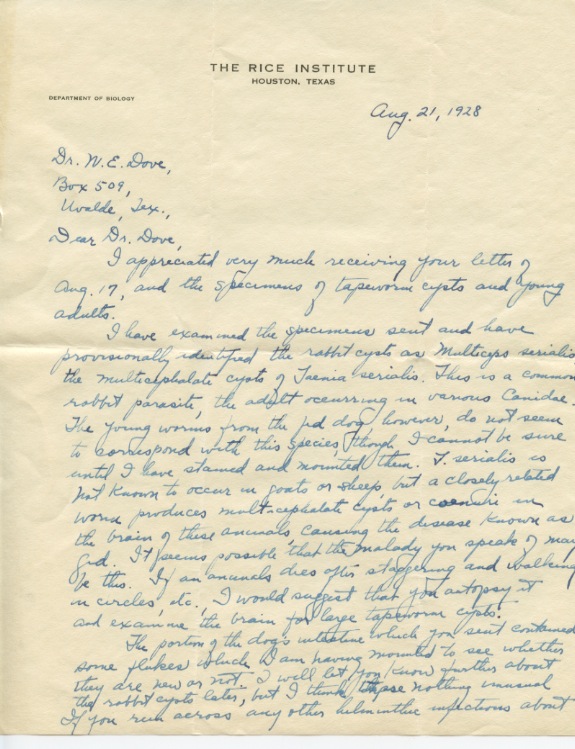 THE RICE INSTITUTE
HOUSTON, TEXAS
DEPARTMENT OF BIOLOGY
Aug. 21, 1928
Dr. W. E. Dove,
Box 509,
Uvalde, Tex.,
Dear Dr. Dove,
I appreciated very much receiving your letter of
Aug. 17, and the specimens of tapeworm cysts and young
adults.
I have examined the specimens sent and have
provisionally identified the rabbit cysts as Multiceps serialis
the multicephalate cysts of Taenia serialis. This is a common
rabbit parasite, the adult occurring in various Canidae.
The young worms from the dog, however, do not seem
to correspond with this species, though I cannot be sure
until I have stained and mounted them. T. serialis is
not known to occur in goats or sheep but a closely related
worm produces multi-cephalate cysts or coenuri in
the brain of these animals, causing the disease known as
gid. It seems possible that the malady you speak of may
be this. If an animals dies after staggering and walking
in circles, etc., I would suggest that you autopsy it
and examine the brain for large tapeworm cysts.
The portion of the dog's intestine which you sent contained
some flukes which I am having mounted to see whether
they are new or not. I will let you know further about
the rabbit cysts later, but I think these nothing unusual
If you run across any other helminthic infections about